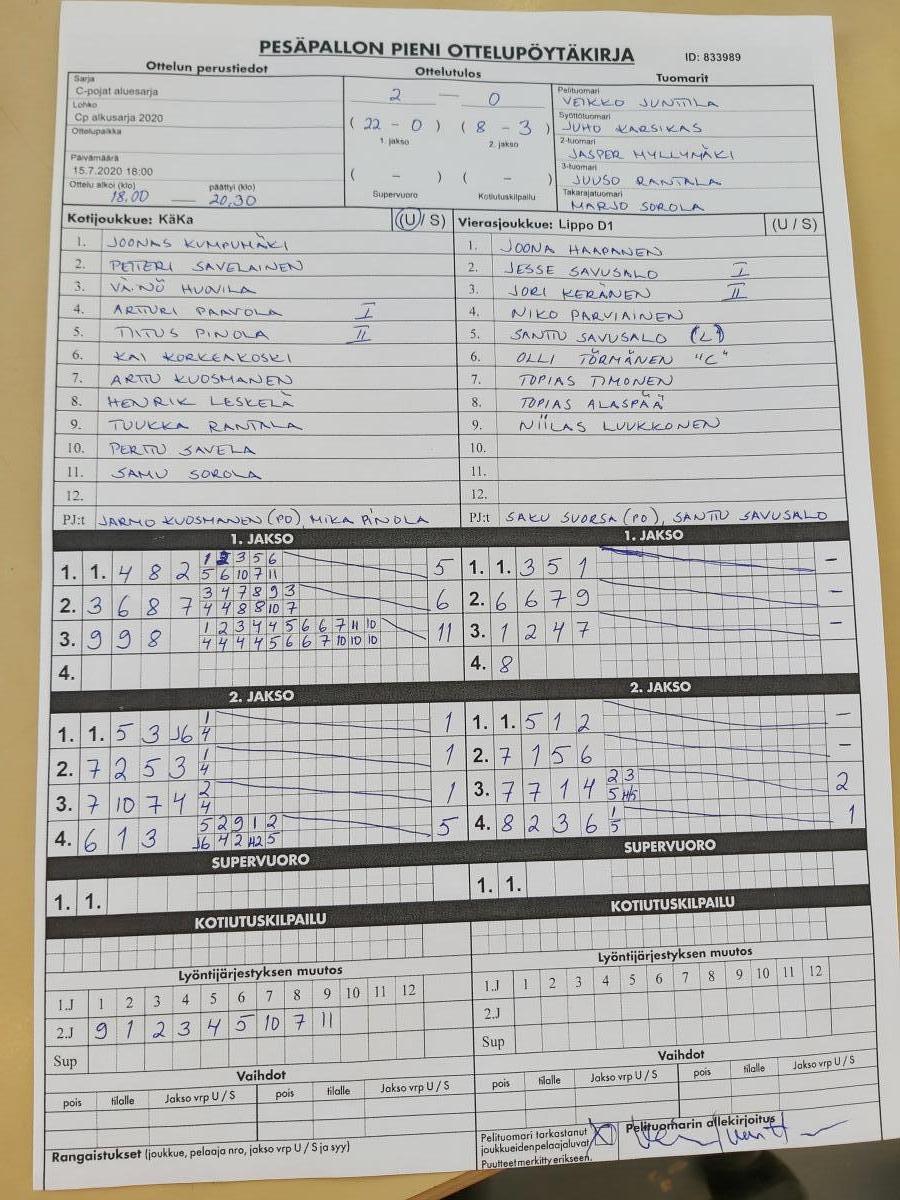 PESÄPALLON PIENI OTTELUPÖYTÄKIRJA
ID: 833989
Ottelun perustiedot
Ottelutulos
Tuomarit
Sarja
C-pojat aluesarja
Lohko
Cp alkusarja 2020
Ottelupaikka
Päivämäärä
15.7.2020 18:00
Ottelu alkoi (klo) päättyi (klo)
18.00 — 20.30
2 — 0
(22 - 0) (8 - 3)
1. jakso 2. jakso
( - ) ( - )
Supervuoro Kotiutuskilpailu
Pelituomari
VEIKKO JUNTTILA
Syöttötuomari
JUHO KARSIKAS
2-tuomari
JASPER MYLLYMÄKI
3-tuomari
JUUSO RANTALA
Takarajatuomari
MARJO SOROLA
Kotijoukkue: KäKa (U / S)
1. JOONAS KUMPUMÄKI
2. PETTERI SAVELAINEN
3. VÄINÖ HUOVILA
4. ARTTURI PAAVOLA I
5. TIITUS PINOLA II
6. KAI KORKEAKOSKI
7. ARTTU KUOSMANEN
8. HENRIK LESKELÄ
9. TUUKKA RANTALA
10. PERTTU SAVELA
11. SAMU SOROLA
12.
PJ:t JARMO KUOSMANEN (PO), MIKA PINOLA
Vierasjoukkue: Lippo D1 (U / S)
1. JOONA HAAPANEN
2. JESSE SAVUSALO I
3. JORI KERÄNEN II
4. NIKO PARVIAINEN
5. SANTTU SAVUSALO (L)
6. OLLI TÖRMÄNEN "C"
7. TOPIAS TIMONEN
8. TOPIAS ALASPÄÄ
9. NIILAS LUUKKONEN
10.
11.
12.
PJ:t SAKU SUORSA (PO), SANTTU SAVUSALO
1. JAKSO
1. 1. 4 8 2 1 2 3 5 6 5
5 6 10 7 11
2. 3 6 8 7 3 4 7 8 9 3 6
4 4 8 8 10 7
3. 9 9 8 1 2 3 4 4 5 6 6 7 11 10 11
4 4 4 4 5 6 6 7 10 10 10
4.
1. JAKSO
1. 1. 3 5 1 –
2. 6 6 7 9 –
3. 1 2 4 7 –
4. 8
2. JAKSO
1. 1. 5 3 J6 1 1
4
2. 7 2 5 3 1 1
4
3. 7 10 7 4 2 1
4
4. 6 1 3 5 2 9 1 2 5
J6 4 2 5
2. JAKSO
1. 1. 5 1 2 –
2. 7 1 5 6 –
3. 7 7 1 4 2 3 2
5
4. 8 2 3 6 1 1
5
SUPERVUORO
1. 1.
SUPERVUORO
1. 1.
KOTIUTUSKILPAILU
KOTIUTUSKILPAILU
Lyöntijärjestyksen muutos
1.J 1 2 3 4 5 6 7 8 9 10 11 12
2.J 9 1 2 3 4 5 10 7 11
Sup
Lyöntijärjestyksen muutos
1.J 1 2 3 4 5 6 7 8 9 10 11 12
2.J
Sup
Vaihdot
pois tilalle Jakso vrp U / S pois tilalle Jakso vrp U / S
Vaihdot
pois tilalle Jakso vrp U / S pois tilalle Jakso vrp U / S
Rangaistukset (joukkue, pelaaja nro, jakso vrp U / S ja syy)
Pelituomari tarkastanut
joukkueidenpelaajaluvat. X
Puutteet merkitty erikseen.
Pelituomarin allekirjoitus